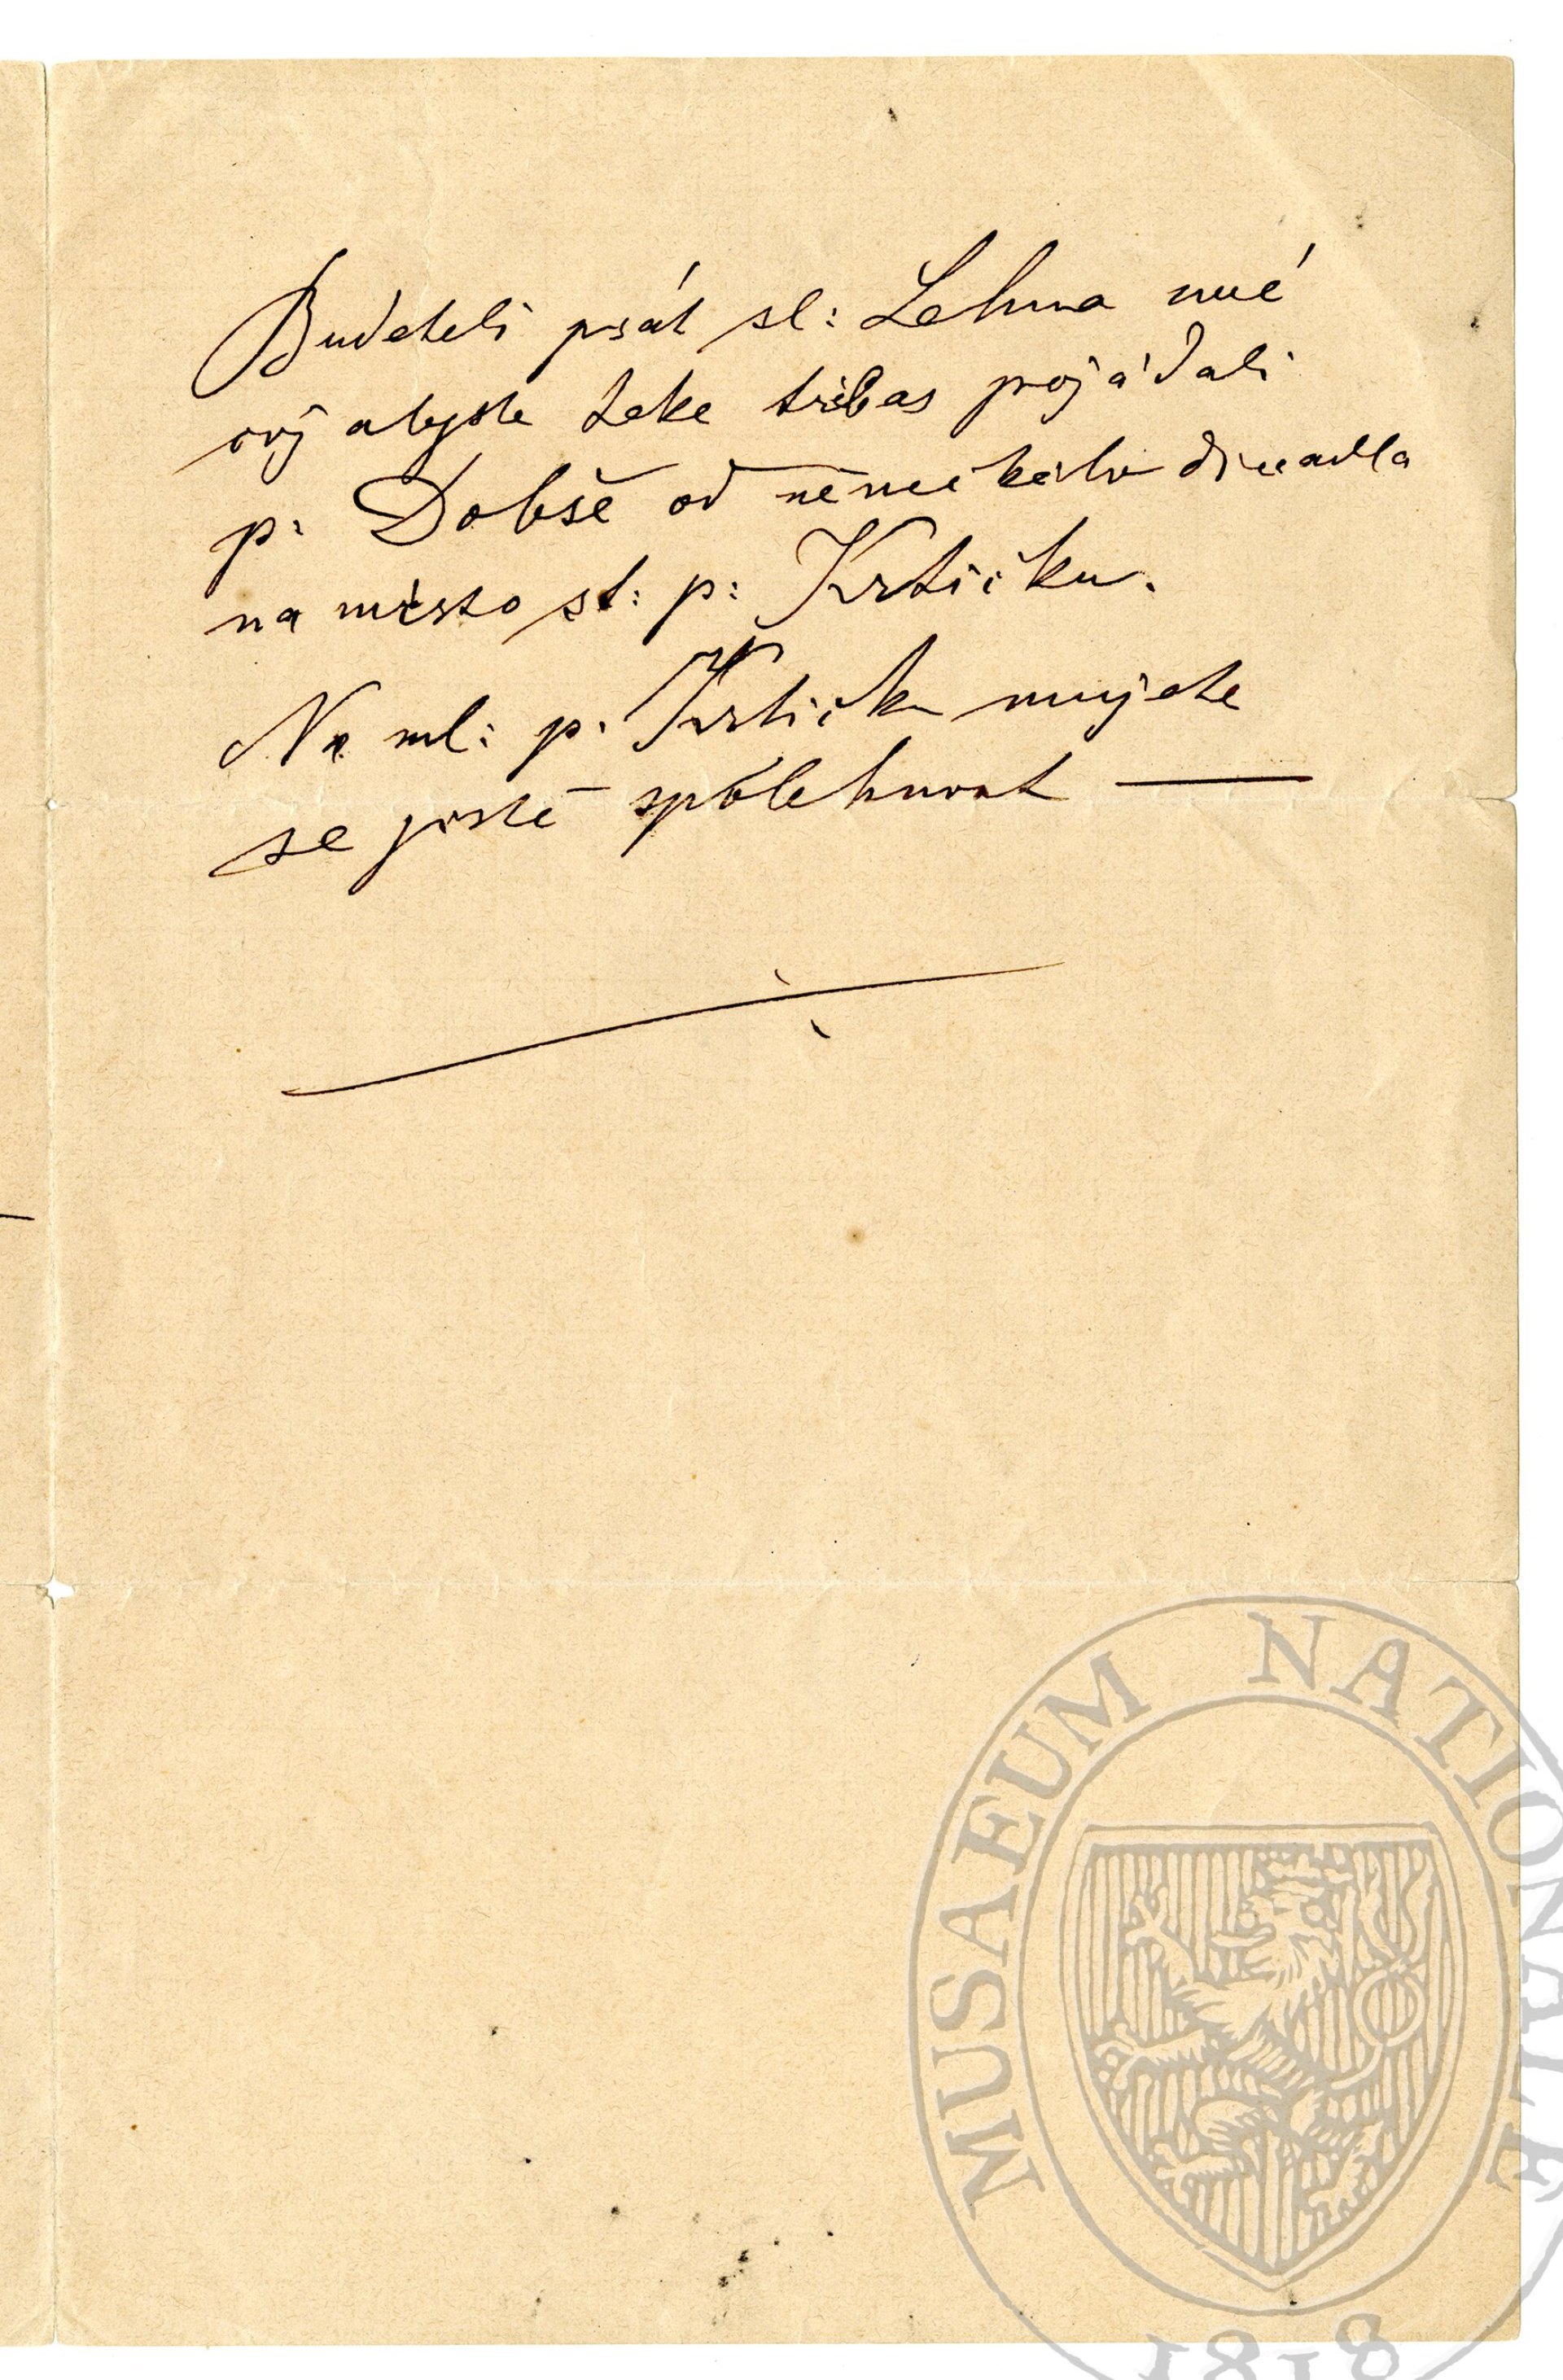 Budeteli psát sl: Lehma nué
ovj abyste take požádali
p. Dobše od německeho divadla
na misto st: p: Krtičku.
Na ml: p. Krtičku mujete
se jistě spolehnout —
MUSAEUM NATIONALE
1818